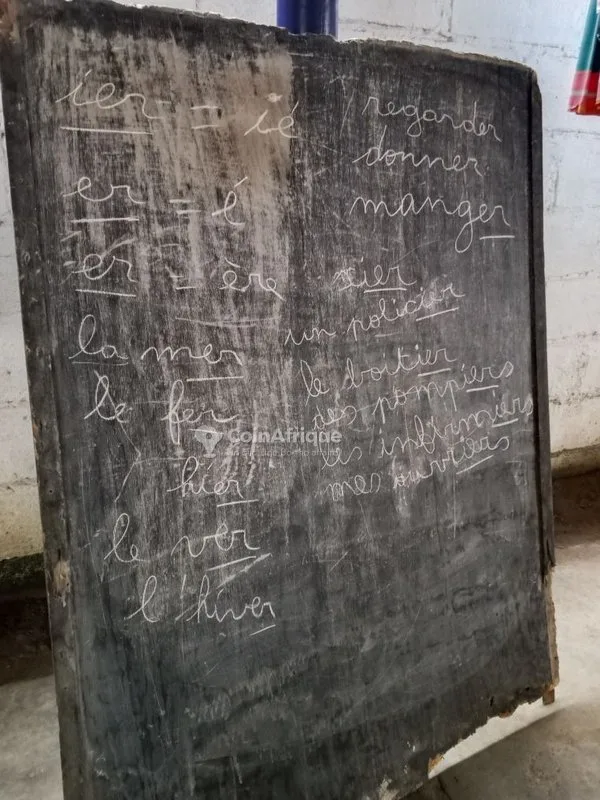 ier = ié
er = é
er = ère
la mer
le fer
hier
le ver
l'hiver
regarder
donner
manger
xier
un policier
le boitier
des pompiers
les infirmiers
mes ouvriers
CoinAfrique